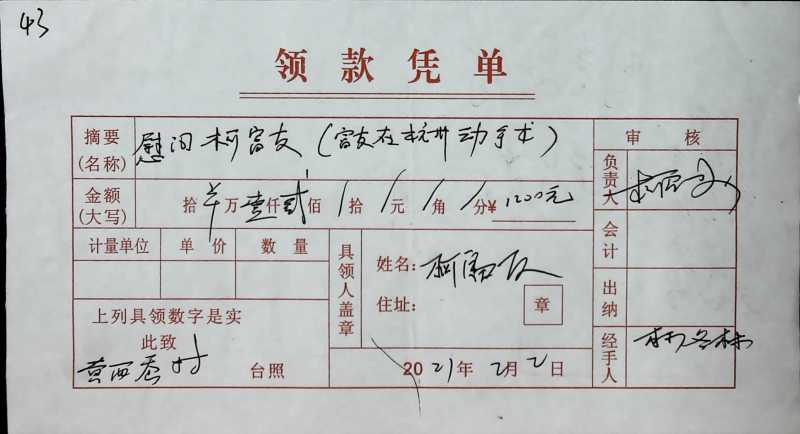 43
领款凭单
摘要(名称) 慰问柯富友(富友在杭州动手术) 审核
金额(大写) 拾 万壹仟贰佰 / 拾 / 元 / 角 / 分¥ 1200元 负责人
计量单位 单价 数量 具领人盖章 姓名: 柯富友 会计
住址: 章 出纳
上列具领数字是实
此致 经手人
黄西 村 台照 2021年2月2日